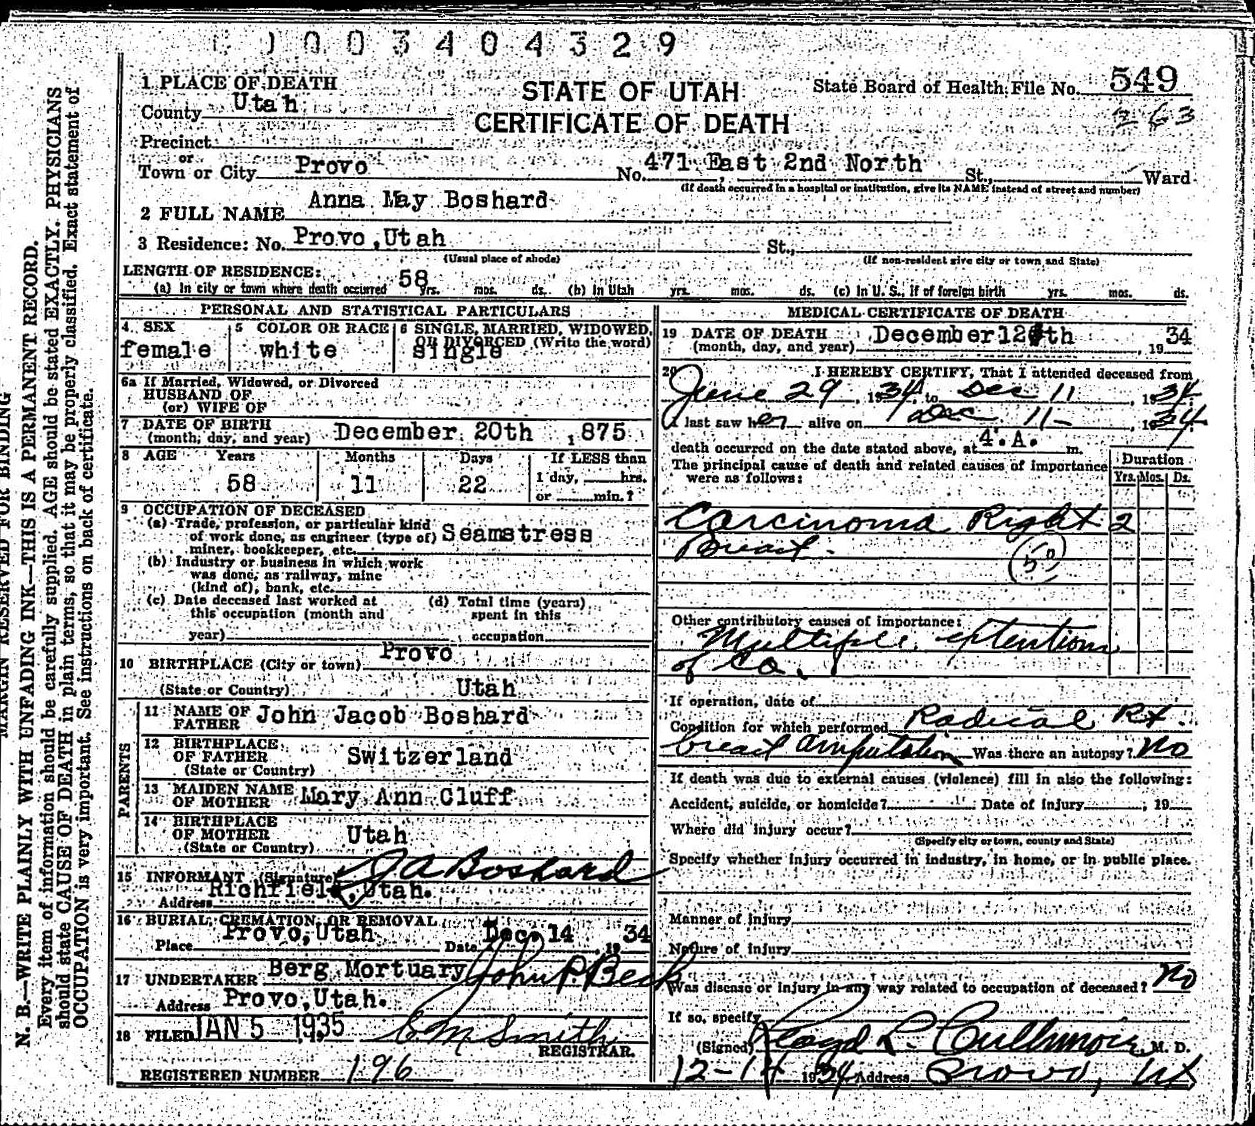 0 0 0 3 4 0 4 3 2 9
1 PLACE OF DEATH
County Utah
STATE OF UTAH
CERTIFICATE OF DEATH
State Board of Health File No. 549
363
Precinct
or
Town or City Provo No. 471 East 2nd North St., Ward
(If death occurred in a hospital or institution, give its NAME instead of street and number)
2 FULL NAME Anna May Boshard
3 Residence: No. Provo, Utah St.,
(Usual place of abode) (If non-resident give city or town and State)
LENGTH OF RESIDENCE:
(a) In city or town where death occurred 58 yrs. mos. ds. (b) In Utah yrs. mos. ds. (c) In U. S., if of foreign birth yrs. mos. ds.
PERSONAL AND STATISTICAL PARTICULARS
4 SEX female
5 COLOR OR RACE white
6 SINGLE, MARRIED, WIDOWED, OR DIVORCED (Write the word) single
6a If Married, Widowed, or Divorced
HUSBAND OF
(or) WIFE OF
7 DATE OF BIRTH
(month, day, and year) December 20th ,875
8 AGE Years Months Days If LESS than
58 11 22 1 day, hrs.
or min.?
9 OCCUPATION OF DECEASED
(a) Trade, profession, or particular kind
of work done, as engineer (type of) Seamstress
miner, bookkeeper, etc.
(b) Industry or business in which work
was done, as railway, mine
(kind of), bank, etc.
(c) Date deceased last worked at
this occupation (month and
year)
(d) Total time (years)
spent in this
occupation
10 BIRTHPLACE (City or town) Provo
(State or Country) Utah
PARENTS
11 NAME OF FATHER John Jacob Boshard
12 BIRTHPLACE OF FATHER
(State or Country) Switzerland
13 MAIDEN NAME OF MOTHER Mary Ann Cluff
14 BIRTHPLACE OF MOTHER
(State or Country) Utah
15 INFORMANT (Signature) J A Boshard
Address Richfield, Utah.
16 BURIAL, CREMATION, OR REMOVAL
Place Provo, Utah Date Dec. 14 , 19 34
17 UNDERTAKER Berg Mortuary John P. Beck
Address Provo, Utah.
18 FILED JAN 5 1935 C M Smith
REGISTRAR.
REGISTERED NUMBER 196
MEDICAL CERTIFICATE OF DEATH
19 DATE OF DEATH
(month, day, and year) December 12th , 19 34
20 I HEREBY CERTIFY, That I attended deceased from
June 29 , 1934 to Dec 11 , 1934
I last saw her alive on Dec 11 - , 1934
death occurred on the date stated above, at 4. A. m.
The principal cause of death and related causes of importance
were as follows:
Duration
Yrs. Mos. Ds.
Carcinoma Right 2
Breast.
50
Other contributory causes of importance:
Multiple extentions
of Ca.
If operation, date of
Condition for which performed Radical Rt.
breast amputation Was there an autopsy? No
If death was due to external causes (violence) fill in also the following:
Accident, suicide, or homicide? Date of injury , 19
Where did injury occur?
(Specify city or town, county and State)
Specify whether injury occurred in industry, in home, or in public place.
Manner of injury
Nature of injury
Was disease or injury in any way related to occupation of deceased? No
If so, specify
(Signed) Lloyd L. Cullimore M. D.
12-14 1934 Address Provo, Ut
MARGIN RESERVED FOR BINDING
N. B.—WRITE PLAINLY WITH UNFADING INK—THIS IS A PERMANENT RECORD.
Every item of information should be carefully supplied. AGE should be stated EXACTLY. PHYSICIANS
should state CAUSE OF DEATH in plain terms, so that it may be properly classified. Exact statement of
OCCUPATION is very important. See instructions on back of certificate.